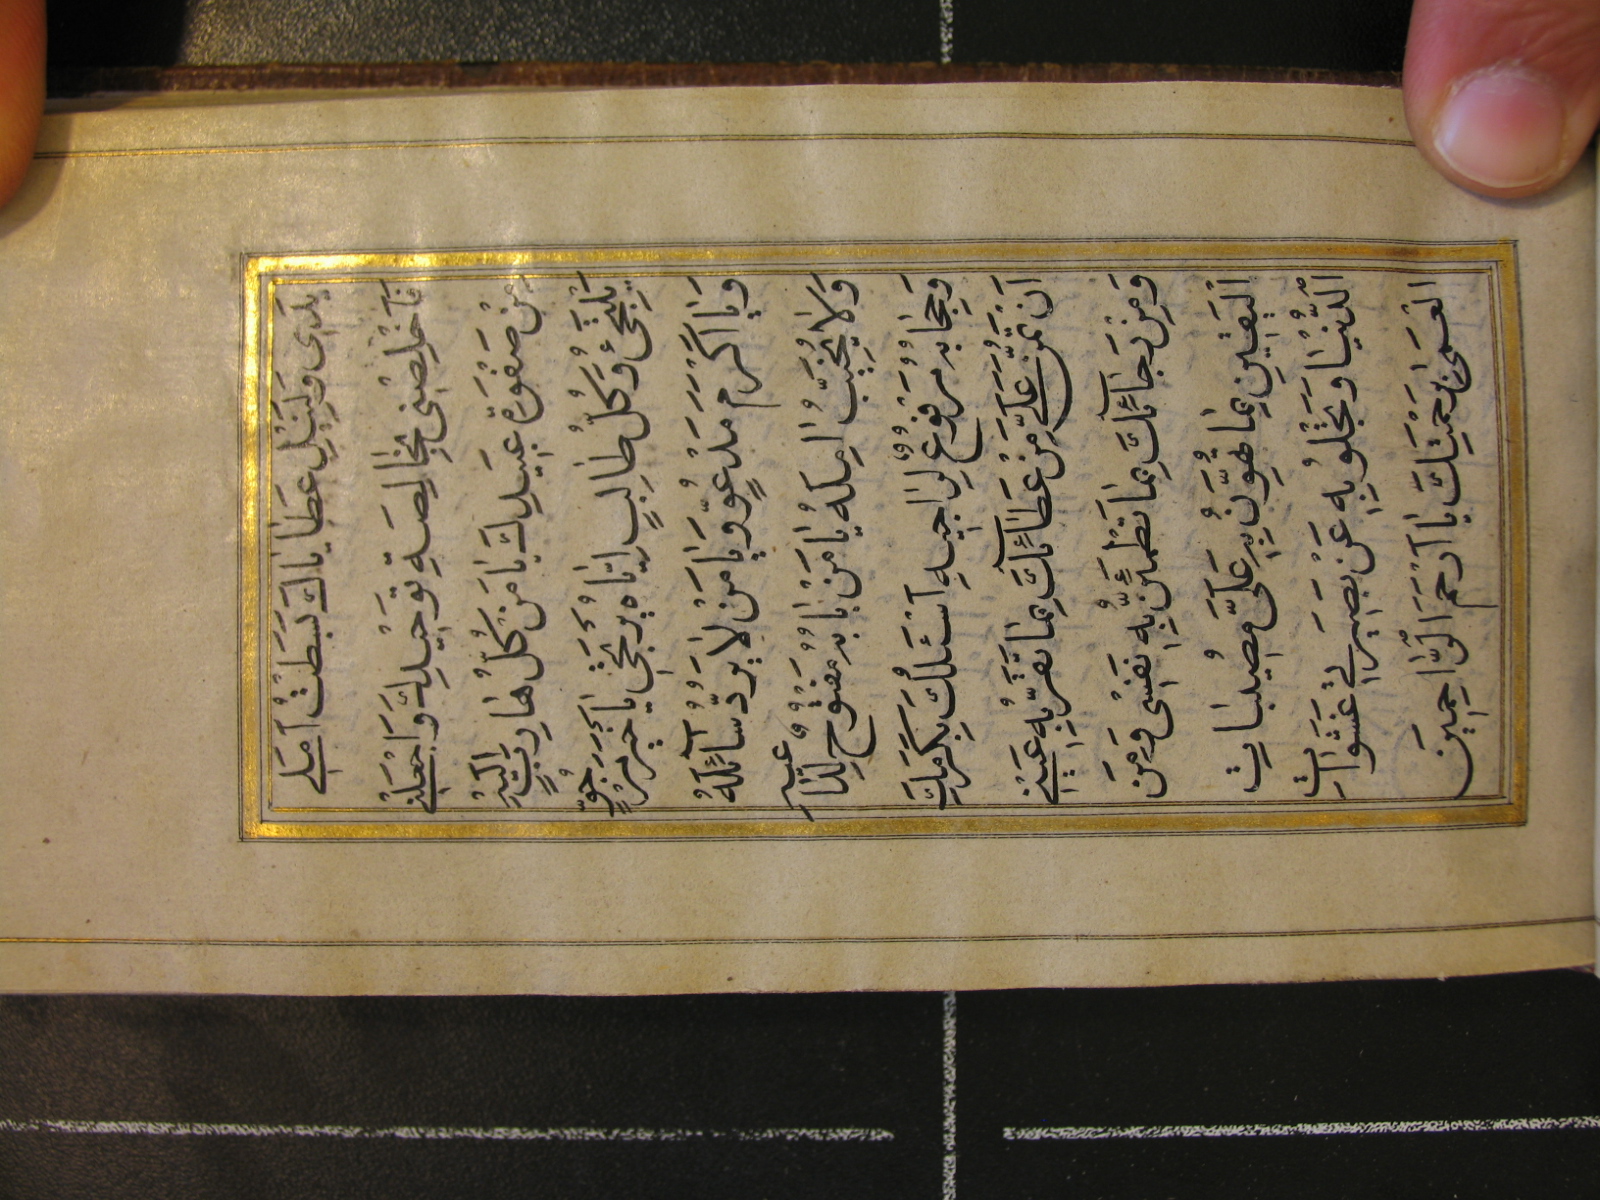 يَدَيَّ وَلِنَيْلِ عَطَايَاكَ بَسَطْتُ اَمَلِي
فَاَخْلِصْنِي بِخَالِصَةِ تَوْحِيدِكَ وَاجْعَلْنِي
مِنْ صَفْوَةِ عَبِيدِكَ يَا مَنْ كُلُّ هَارِبٍ اِلَيْهِ
يَلْتَجِئُ وَكُلُّ طَالِبٍ اِيَّاهُ يَرْتَجِي يَا خَيْرَ مَرْجُوٍّ
وَيَا اَكْرَمَ مَدْعُوٍّ وَيَا مَنْ لَا يَرُدُّ سَآئِلَهُ
وَلَا يُخَيِّبُ اٰمِلَهُ يَا مَنْ بَابُهُ مَفْتُوحٌ لِدَاعِيهِ
وَحِجَابُهُ مَرْفُوعٌ لِرَاجِيهِ اَسْئَلُكَ بِكَرَمِكَ
اَنْ تَمُنَّ عَلَيَّ مِنْ عَطَآئِكَ بِمَا تَقَرُّ بِهِ عَيْنِي
وَمِنْ رَجَآئِكَ بِمَا تَطْمَئِنُّ بِهِ نَفْسِي وَمِنَ
الْيَقِينِ بِمَا تُهَوِّنُ بِهِ عَلَيَّ مُصِيبَاتِ
الدُّنْيَا وَتَجْلُو بِهِ عَنْ بَصِيرَتِي غَشَوَاتِ
الْعَمَى بِرَحْمَتِكَ يَا اَرْحَمَ الرَّاحِمِينَ